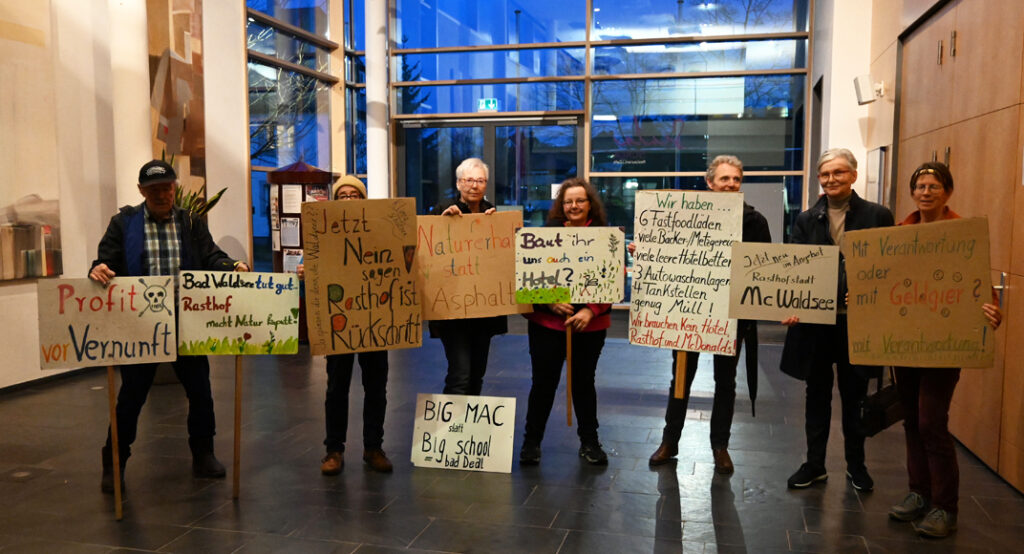 Profit
vor Vernunft
Bad Waldsee tut gut.
Rasthof
macht Natur kaputt
Jetzt
Nein
sagen
Rasthof ist
Rückschritt
Naturerhalt
statt
Asphalt
Baut ihr
uns auch ein
Hotel?
BIG MAC
statt
Big school
= bad Deal
Wir haben...
6 Fastfoodläden
viele Bäcker/Metzgereien
viele leere Hotelbetten
3 Autowaschanlagen
4 Tankstellen
genug Müll!
Wir brauchen Kein Hotel,
Rasthof und McDonald's!
Jetzt neu im Angebot
Rasthofstadt
McWaldsee
Mit Verantwortung
oder
mit Geldgier?